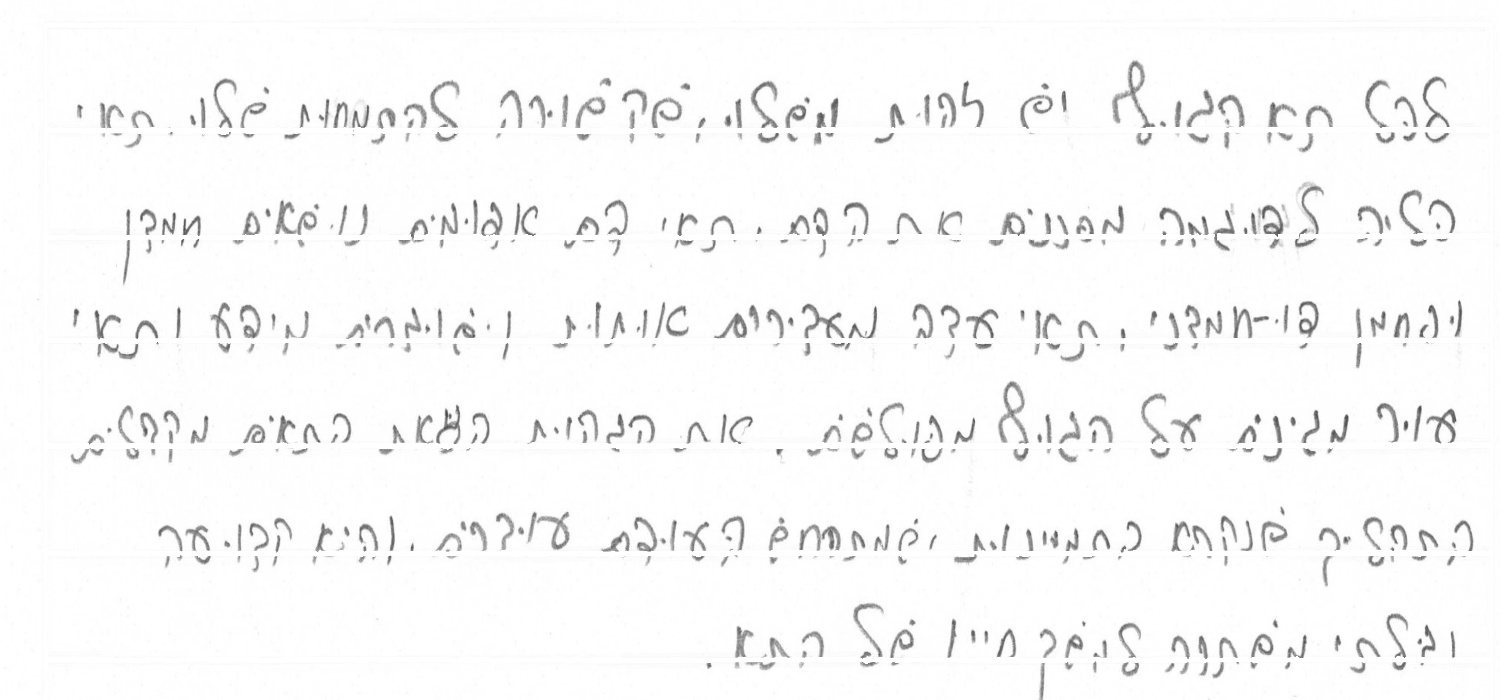 לכל תא בגוף יש זהות משלו, שקשורה להתמחות שלו. תאי
כליה לדוגמה מסננים את הדם. תאי דם אדומים נושאים חמצן
ופחמן דו-חמצני, תאי עצב מעבירים אותות ויוצרים מידע ותאי
עור מגינים על הגוף מפולשים. את הזהות הזאת התאים מקבלים
בתהליך שנקרא התמיינות, שמתרחש בעובר, והיא קבועה
ובלתי משתנה למשך חייו של התא.